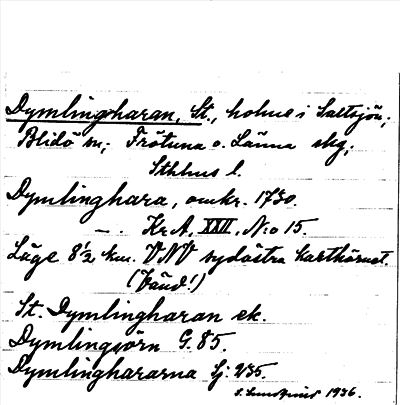 Dymlingharan, St., holme i Saltsjön;
Blidö sn; Frötuna o. Länna skg;
Sthlms l.
Dymlinghara, omkr. 1730.
— . KrA, XXII, No 15.
Läge 8 1/2 km. VNV sydöstra karthörnet.
(Vänd!)
St. Dymlingharan ek.
Dymlingsörn G. 85.
Dymlinghararna Sj. 235.
1936.